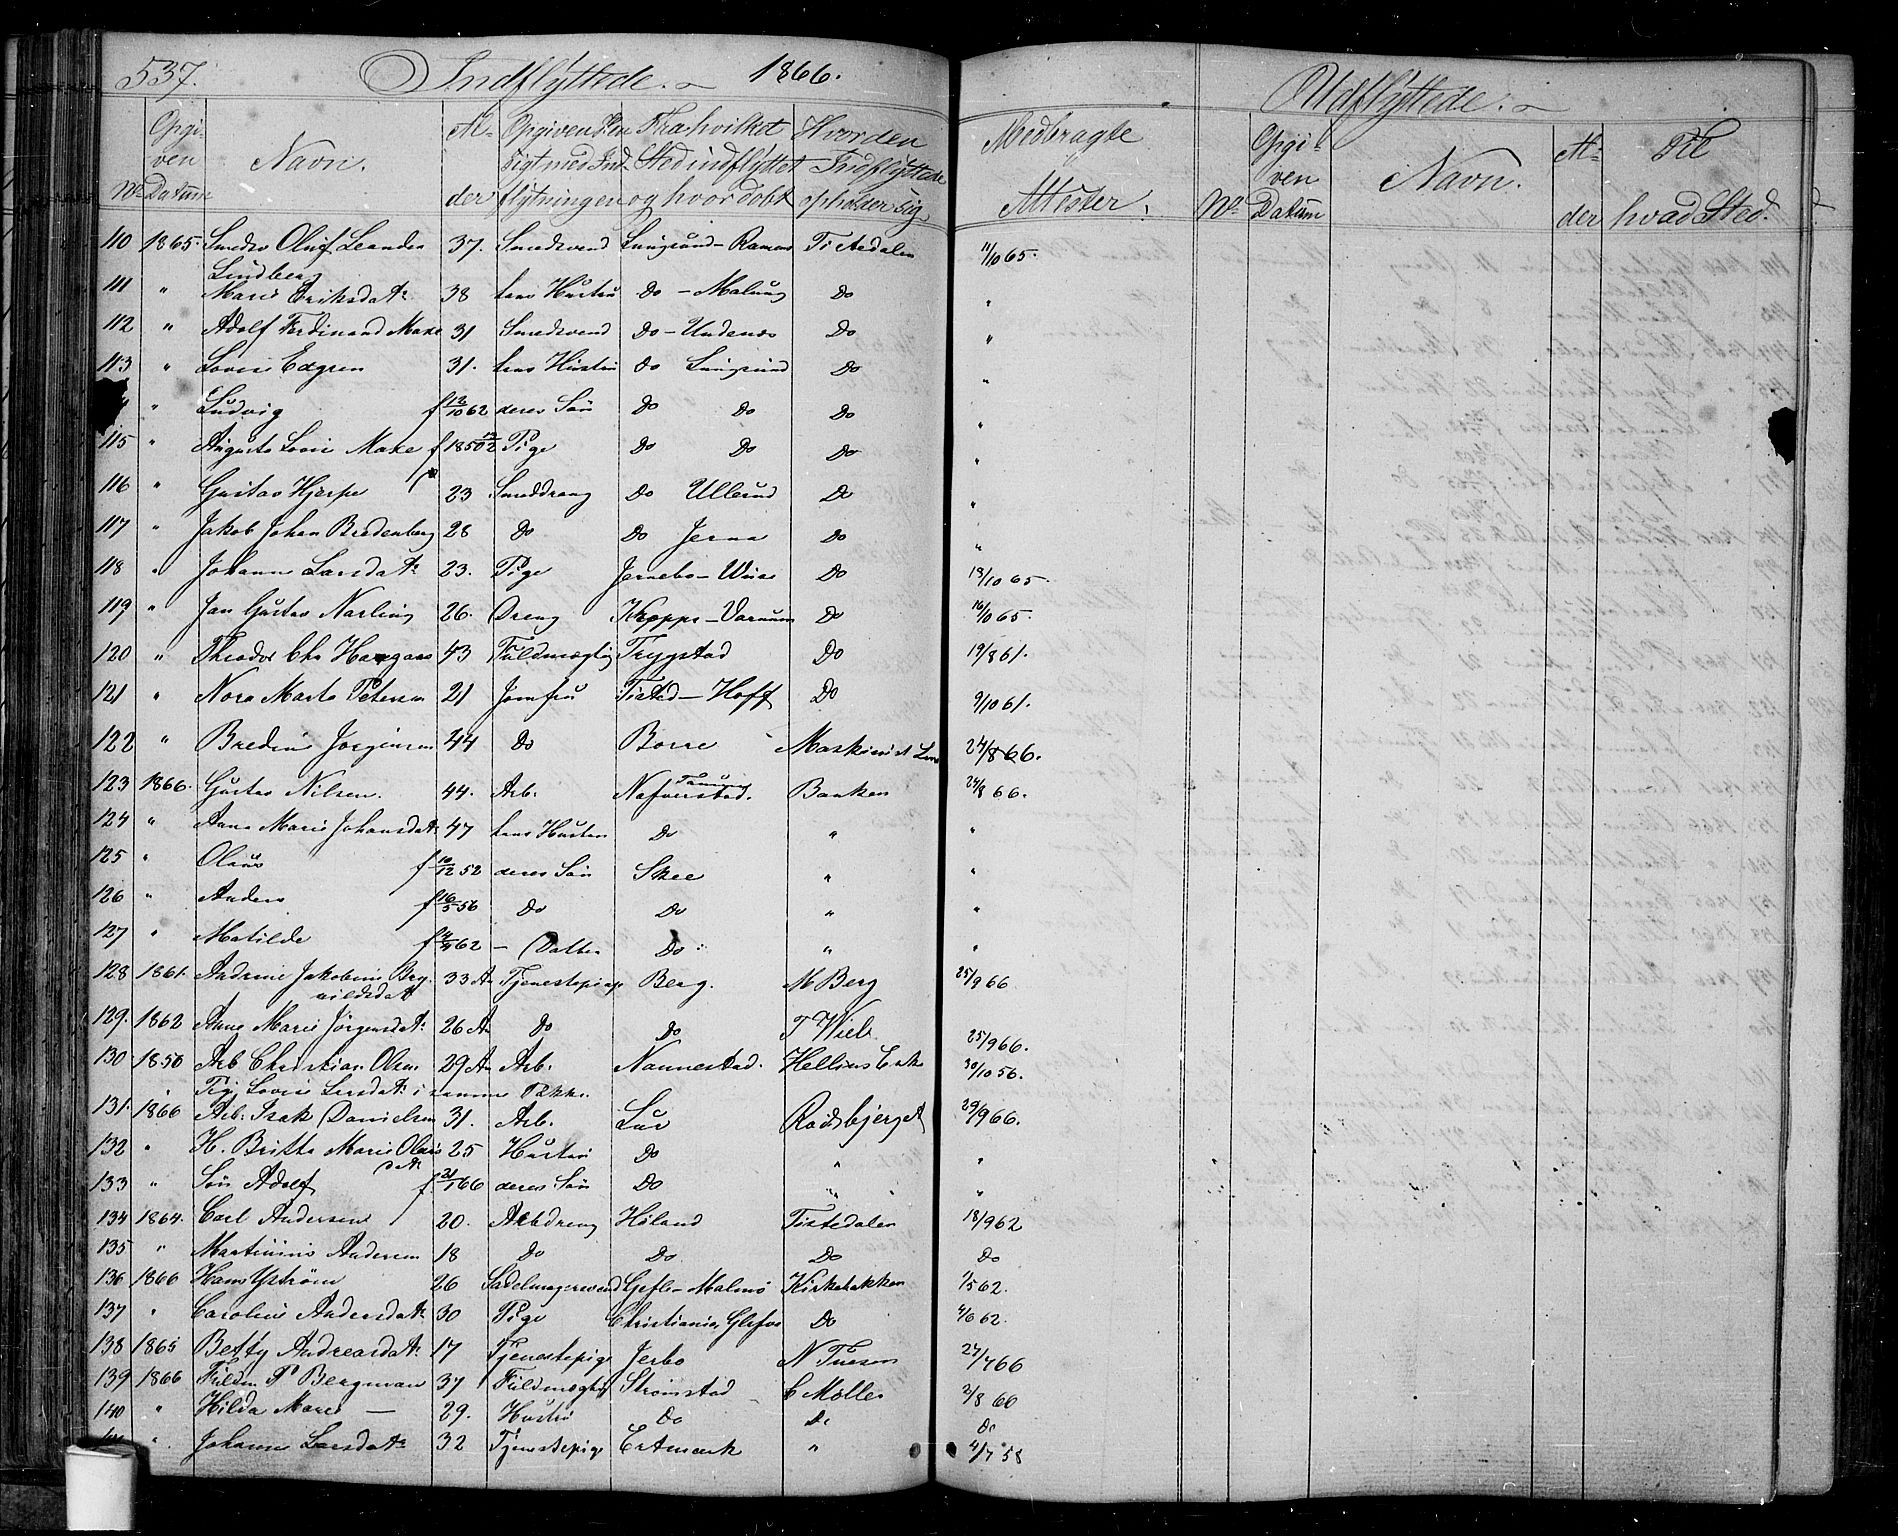 537. Indflyttede. 1866. Udflyttede.
No Opgiven Datum Navn. Alder Opgiven Hensigt med Indflytningen Fra hvilket Sted indflyttet og hvor døbt Hvor den Indflyttede opholder sig Medbragte Attester. No Opgiven Datum Navn. Alder Til hvad Sted.
110 1865. Smedsv Oluf Leander 37. Smedsvend Lungsund - Ti Aedalen 11/10 65.
Lindberg
111 " Marie Eriksdatr 38 hans Hustru Do - Malung Do "
112 " Adolf Ferdinand Maxe 31 Smedsvend Do - Undenæs Do "
113 " Lovise Edgren 31. hans Hustru Do Lungsund Do "
" Ludvig f 12/10 62 deres Søn Do Do Do "
115 " Augusta Lovise Maxe f 1850 Pige Do Do Do "
116 " Gustav Hjerpe 23 Smeddreng Do Ullerud Do "
117 " Jakob Johan Bredenberg 28 Do Do Jerna Do "
118 " Johanne Larsdatr 23. Pige Jernebo - Do 13/10 65.
119 " Jan Gustav Narling 26. Dreng Kroppe - Varnum Do 16/10 65.
120 " Theodor Chr 43 Fuldmægtig Trygstad Do 19/8 61.
121 " Nora Marta Petersen 21 Jomfru Tisted - Hoff Do 9/10 61.
122 " Bredine Jørgensen 44 Do Borre Maskinist 24/8 66.
123 1866. Gustav Nilsen. 44. Arb. Nafverstad. Tanum Bakken 24/8 66.
124 " Anna Marie Johansdatr 47 hans Hustru Do " "
125 " Olaus f 10/12 52 deres Søn Skee " "
126 " Anders f 16/5 56 Do Do " "
127 " Matilde f 62 - Datter Do " "
128 1861. Andrine Jakobine 33 Ar Tjenestepige Berg. M Berg 25/9 66
129. 1862 Anne Marie Jørgensdatr 26 Ar Do Do T Wiel 25/9 66.
130 1856 Arb Christian Olsen 29 Ar Arb. Nannestad. 30/10 56.
" Pig Lovise Larsdatr i samme Pakke.
131. 1866 Arb. Isak Danielsen 31. Arb. Lur Rødsbjerget 29/9 66.
132 " H. Britta Marie Olaus 25 Hustru Do " "
datr
133 " Søn Adolf f. 21/1 66 deres Søn Do " "
134 1864. Carl Andersen 20. Arbdreng Høland Tistedalen 18/9 62
135 " Martinius Andersen 18 Do Do Do Do
136 1866 Hans Ystrøm 26 Sadelmagersvend Gefle - Malmø Kirkebakken 1/5 62.
137 " Caroline Andersdatr 30 Pige Christiania, Do 4/6 62.
138 1865 Betty Andreasdatr 17 Tjenestepige Jerbo N Tuesen 24/7 66
139 1866 Fuldm P Bergman 37 Fuldmægtig Strømstad C Møller 2/8 60
140 " Hilda Marie - 29. Hustru Do Do Do
". Johanne Larsdatr 32 Tjenestepige Ertmark " 4/7 58